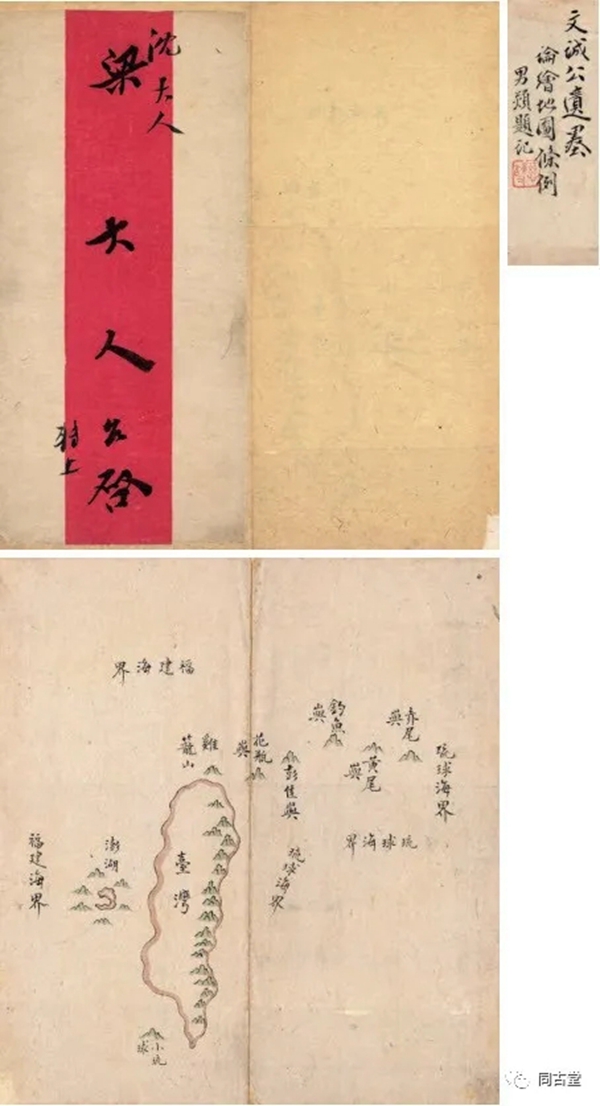 沈大人
梁大人公啓
文誠公遺墨
論繪地圖條例
福建海界
赤尾嶼
釣魚嶼
黃尾嶼
琉球海界
花瓶嶼
彭佳嶼
雞籠山
琉球海界
琉球海界
臺灣
澎湖
福建海界
小琉球
同古堂